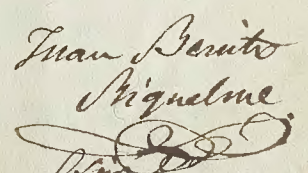 Juan Benito
Riquelme